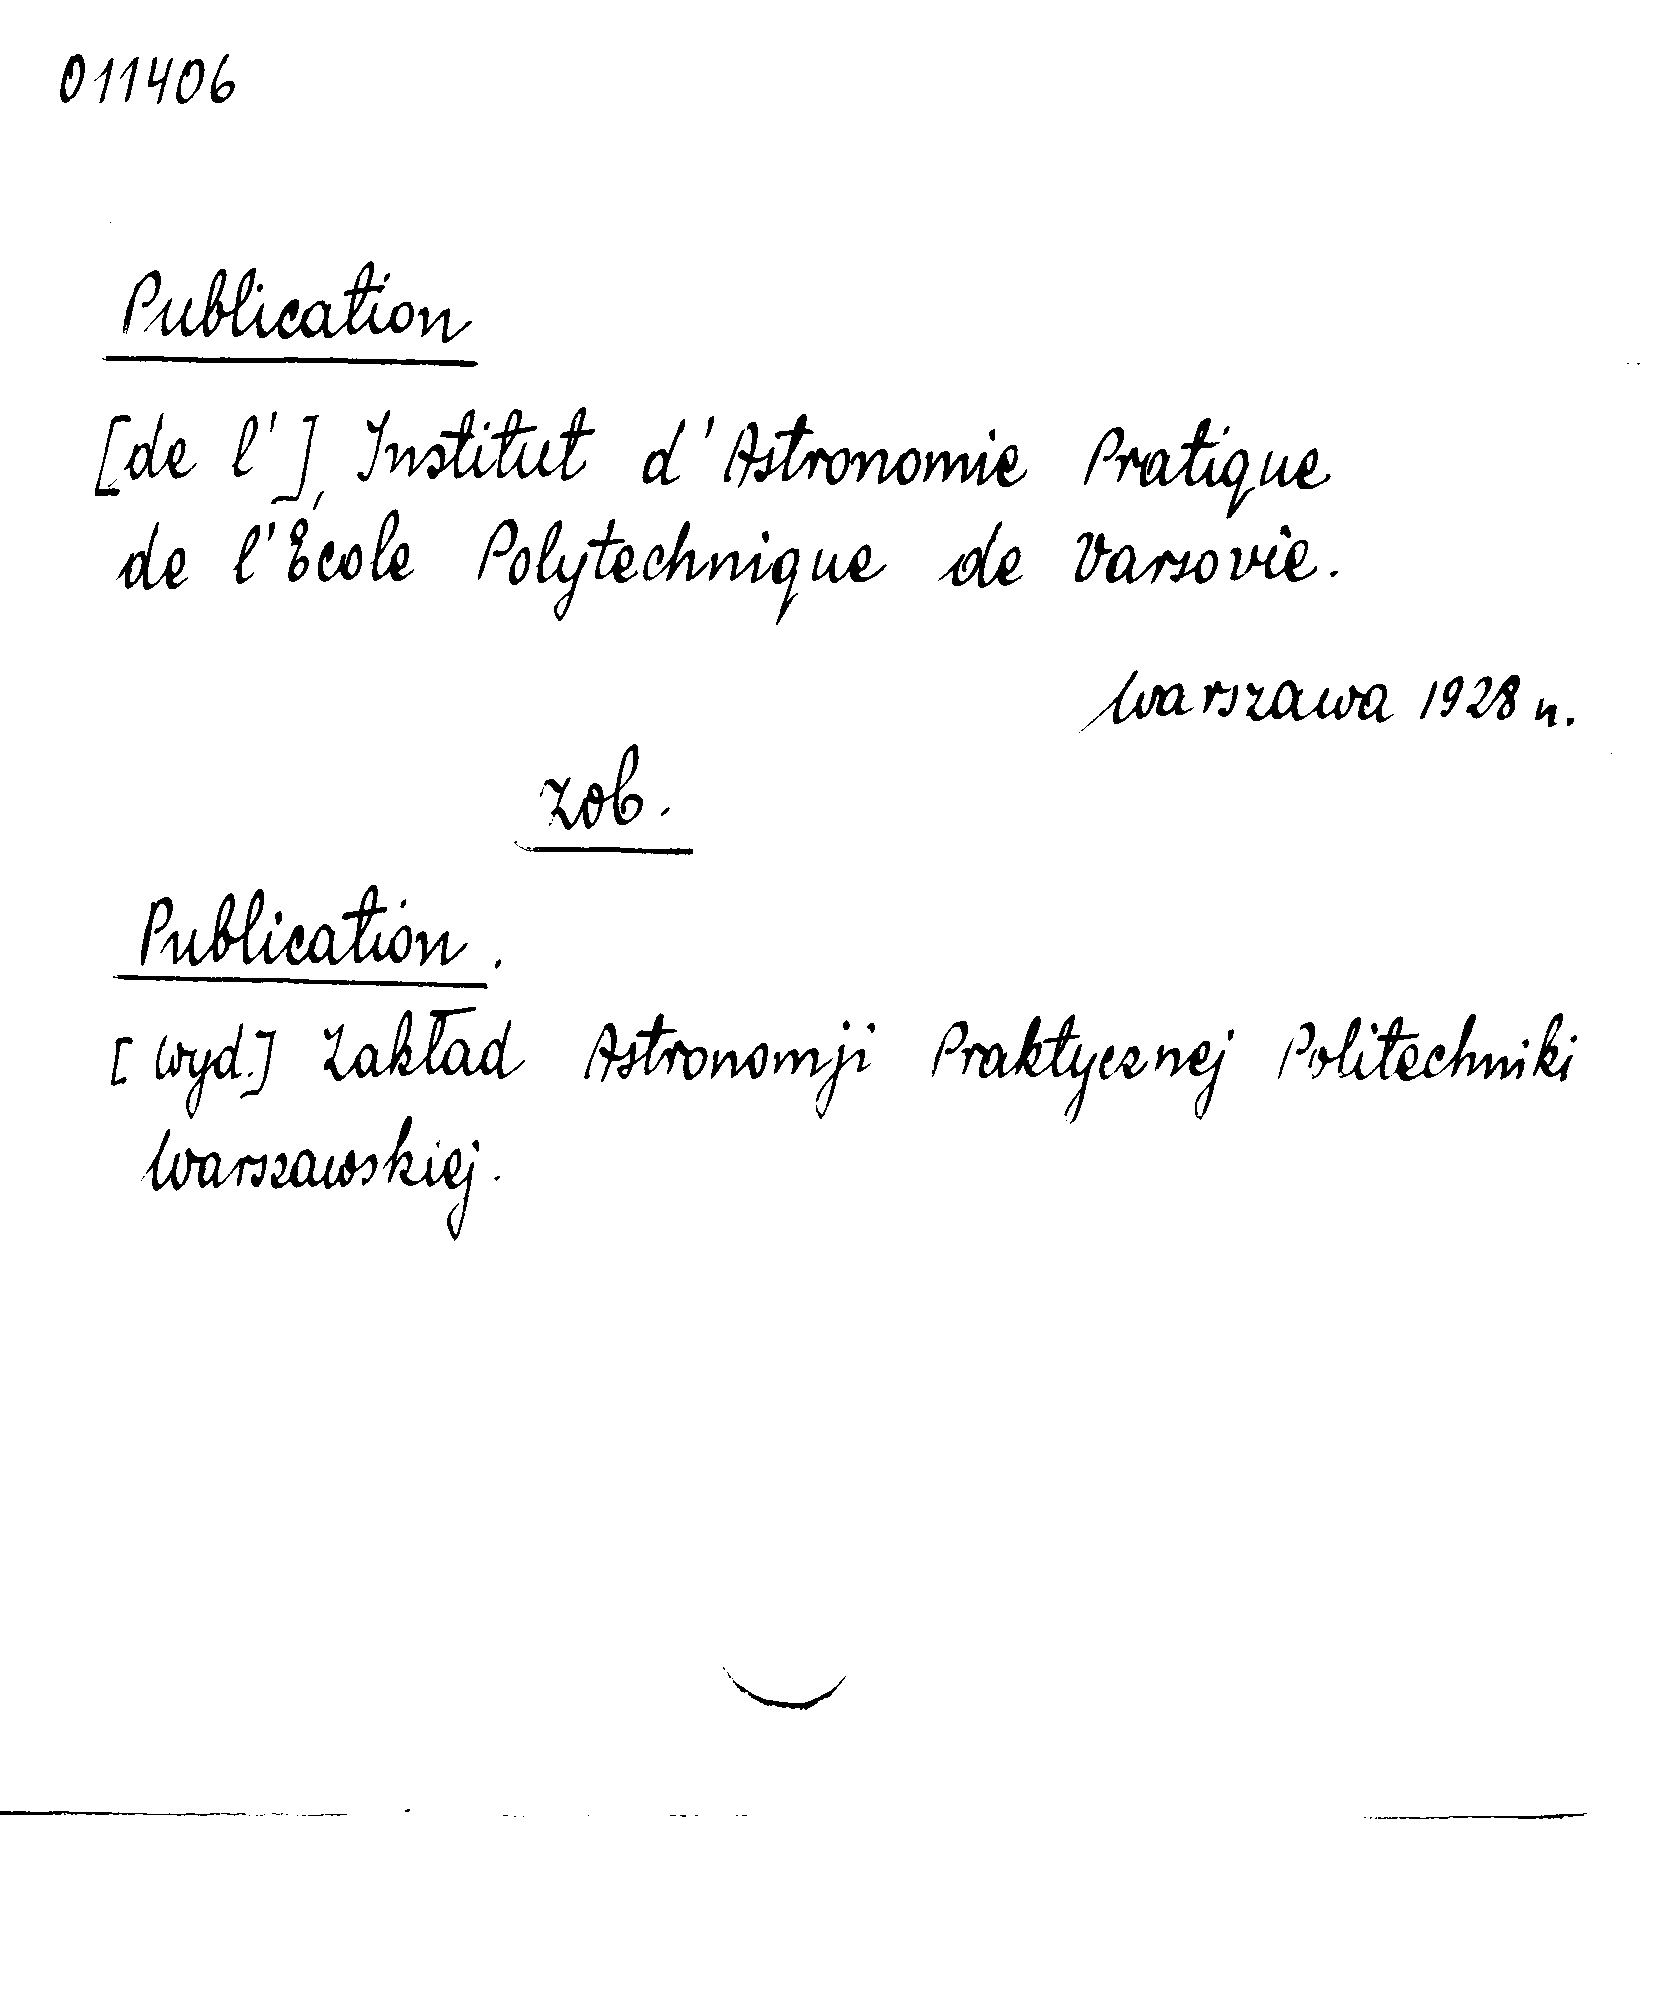 011406
Publication
[de l'] Institut d'Astronomie Pratique
de l'École Polytechnique de Varsovie.
Warszawa 1928 n.
zob.
Publication.
[wyd.] Zakład Astronomji Praktycznej Politechniki
Warszawskiej.